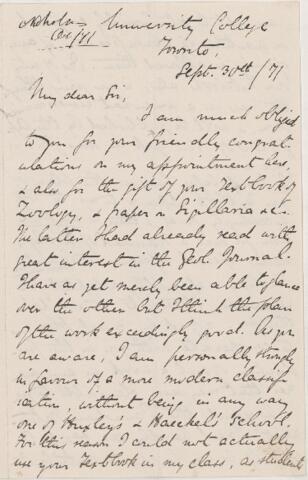 Nicholson
Oct/71
University College
Toronto,
Sept. 30th /71
My dear Sir,
I am much obliged
to you for your friendly congrat-
ulations on my appointment here,
& also for the gift of your Textbook of
Zoology, & paper on Sigillaria &c.
The latter I had already read with
great interest in the Geol. Journal.
I have as yet merely been able to glance
over the other but I think the plan
of the work exceedingly good. As you
are aware, I am personally strongly
in favour of a more modern classifi-
cation, without being in any way
one of Huxley's & Haeckel's school.
For this reason I could not actually
use your Textbook in my class, as students